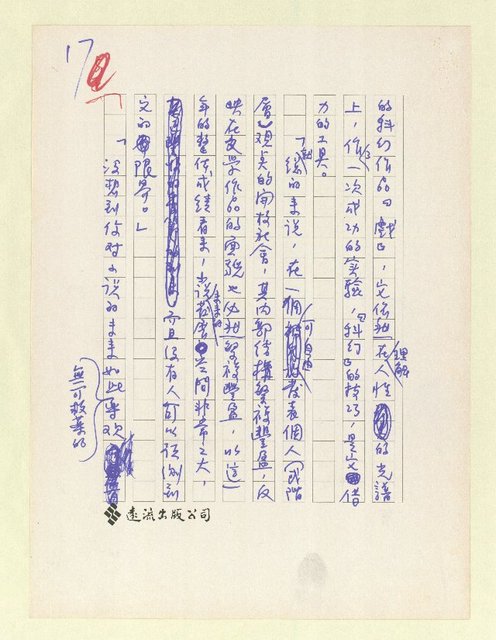 17
的科幻作品日戲曰,它依然在人性理解的光譜
上,作了一次成功的實驗,「科幻」的技巧,是它借
力的工具。
「總的來說,在一個可自由發表個人(或階
層)觀點的開放社會,其內部結構繁複豐盈,反
映在文學作品的面貌也必然繁複豐盈,以這一
年的整體成績看來,小說未來的發展空間非常之大,
而且沒有人可以預測到
它的限界。」
「沒想到你對小說的未來如此樂觀
無可救藥的
遠流出版公司